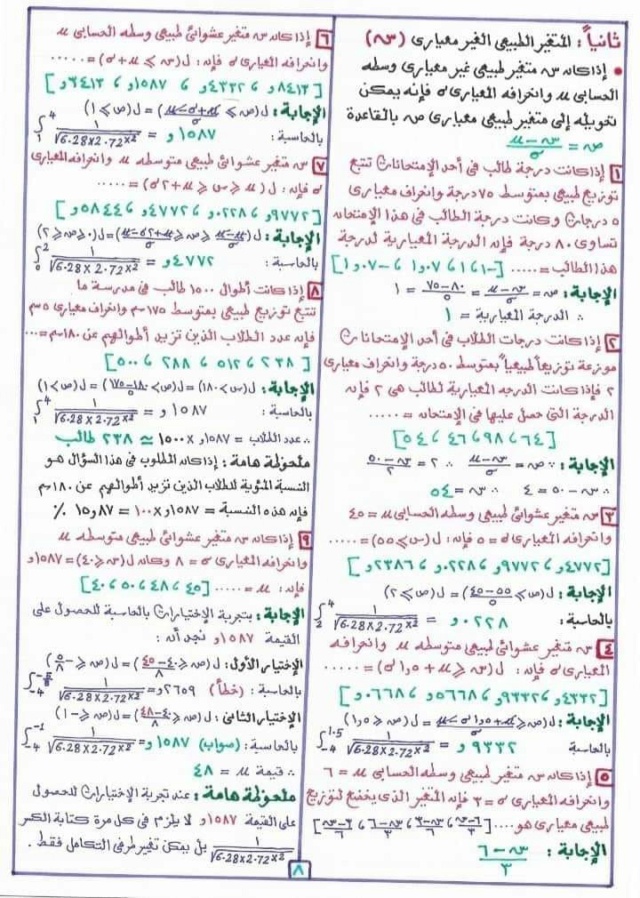 ثانياً : المتغير الطبيعى الغير معيارى (س)
• إذا كان س متغير طبيعى غير معيارى وسطه
الحسابى μ وانحرافه المعيارى σ فإنه يمكن
تحويله إلى متغير طبيعى معيارى ص بالقاعدة
ص = (س - μ)/σ
١ إذا كانت درجة طالب فى أحد الإمتحانات تتبع
توزيع طبيعى بمتوسط ٧٥ درجة وانحراف معيارى
٥ درجات وكانت درجة الطالب فى هذا الإمتحان
تساوى ٨٠ درجة فإن الدرجة المعيارية لدرجة
هذا الطالب = ..... [-١ ، ١ ، ٠٫٧ ، -٠٫٧]
الإجابة : ص = (س - μ)/σ = (٨٠ - ٧٥)/٥ = ١
∴ الدرجة المعيارية = ١
٢ إذا كانت درجات الطلاب فى أحد الإمتحانات
موزعة توزيعاً طبيعياً بمتوسط ٥٠ درجة وانحراف معيارى
٢ فإذا كانت الدرجة المعيارية لطالب هى ٢ فإن
الدرجة التى حصل عليها فى الإمتحان = .....
[٦٤ ، ٩٨ ، ٤٦ ، ٥٤]
الإجابة : ∵ ص = (س - μ)/σ ∴ ٢ = (س - ٥٠)/٢
∴ س - ٥٠ = ٤ ∴ س = ٥٤
٣ س متغير عشوائى طبيعى وسطه الحسابى μ = ٤٥
وانحرافه المعيارى σ = ٥ فإن : ل(س ≥ ٥٥) = .....
[٤٧٧٢و ، ٩٧٧٢و ، ٠٢٢٨و ، ٢٣٨٦و]
الإجابة : ل(ص ≥ (٥٥ - ٤٥)/٥) = ل(ص ≥ ٢)
بالحاسبة : = ٠٢٢٨و ∫₂⁴ 1/√(6.28×2.72^x²)
٤ س متغير عشوائى طبيعى متوسطه μ وانحرافه
المعيارى σ فإن : ل(س ≤ μ + ١٫٥σ) = .....
[٤٣٣٢و ، ٩٣٣٢و ، ٥٦٦٨و ، ٠٦٦٨و]
بالحاسبة = ٩٣٣٢و ∫₋₄^1.5 1/√(6.28×2.72^x²)
٥ إذا كان س متغير طبيعى وسطه الحسابى μ = ٦
وانحرافه المعيارى σ = ٣ فإن المتغير الذى يخضع لتوزيع
طبيعى معيارى هو ....
الإجابة : (س - ٦)/٣
٦ إذا كان س متغير عشوائى طبيعى وسطه الحسابى μ
وانحرافه المعيارى σ فإن : ل(س ≥ μ + σ) = .....
[٨٤١٣و ، ٤٣٣٢و ، ١٥٨٧و ، ٣٤١٣و]
بالحاسبة : = ١٥٨٧و ∫₁⁴ 1/√(6.28×2.72^x²)
٧ س متغير عشوائى طبيعى متوسطه μ وانحرافه المعيارى
σ فإن : ل(μ ≤ س ≤ μ + ٢σ) = .....
[٩٧٧٢و ، ٠٢٢٨و ، ٤٧٧٢و ، ٥٨٤٤و]
الإجابة : ل((μ-μ)/σ ≤ ص ≤ (μ+٢σ-μ)/σ) = ل(٠ ≤ ص ≤ ٢)
بالحاسبة : = ٤٧٧٢و ∫₀² 1/√(6.28×2.72^x²)
٨ إذا كانت أطوال ١٠٠٠ طالب فى مدرسة ما
تتبع توزيع طبيعى بمتوسط ١٧٥سم وانحراف معيارى ٥سم
فإن عدد الطلاب الذين تزيد أطوالهم عن ١٨٠سم = ....
[٢٣٨ ، ٥١٢ ، ٢٨٨ ، ٥٠٠]
الإجابة : ل(س > ١٨٠) = ل(ص > (١٨٠ - ١٧٥)/٥) = ل(ص > ١)
بالحاسبة : = ١٥٨٧و ∫₁⁴ 1/√(6.28×2.72^x²)
∴ عدد الطلاب = ١٥٨٧و × ١٥٠٠ ≃ ٢٣٨ طالب
ملحوظة هامة : إذا كان المطلوب فى هذا السؤال هو
النسبة المئوية للطلاب الذين تزيد أطوالهم عن ١٨٠سم
فإن هذه النسبة = ١٥٨٧و × ١٠٠ = ١٥٫٨٧ ٪
٩ إذا كان س متغير عشوائى طبيعى متوسطه μ
وانحرافه المعيارى σ = ٨ وكان ل(س ≤ ٤٠) = ١٥٨٧و
فإن : μ = ..... [٤٥ ، ٤٨ ، ٥٠ ، ٤٠]
الإجابة : بتجربة الإختيارات بالحاسبة للحصول على
القيمة ١٥٨٧و نجد أن :
الإختيار الأول : ل(ص ≤ (٤٠ - ٤٥)/٨) = ل(ص ≤ -٥/٨)
بالحاسبة : (خطأ) ٢٦٥٩و = ∫₋₄^(-5/8) 1/√(6.28×2.72^x²)
الإختيار الثانى : ل(ص ≤ (٤٠ - ٤٨)/٨) = ل(ص ≤ -١)
بالحاسبة : (صواب) ١٥٨٧و = ∫₋₄^-1 1/√(6.28×2.72^x²)
∴ قيمة μ = ٤٨
ملحوظة هامة : عند تجربة الإختيارات للحصول
على القيمة ١٥٨٧و لا يلزم فى كل مرة كتابة الكسر
1/√(6.28×2.72^x²) بل يمكن تغيير طرفى التكامل فقط .
٨